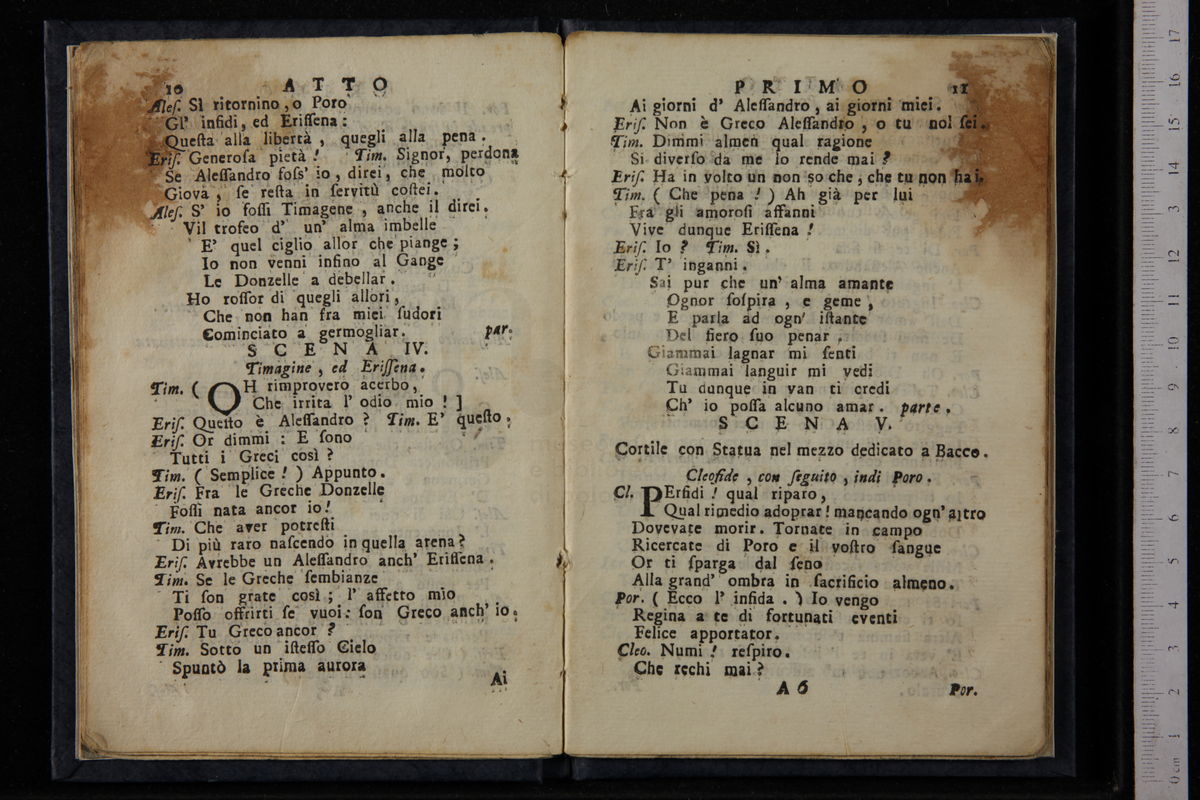 10 ATTO
Aleſ. Sì ritornino, o Poro
Gl' infidi, ed Eriſſena:
Queſta alla libertà, quegli alla pena.
Eriſ. Generoſa pietà! Tim. Signor, perdona
Se Aleſſandro foſs' io, direi, che molto
Giova, ſe reſta in ſervitù coſtei.
Aleſ. S' io foſſi Timagene, anche il direi.
Vil trofeo d' un' alma imbelle
E' quel ciglio allor che piange;
Io non venni infino al Gange
Le Donzelle a debellar.
Ho roſſor di quegli allori,
Che non han fra miei ſudori
Cominciato a germogliar. par.
SCENA IV.
Timagine, ed Eriſſena.
Tim. ( OH rimprovero acerbo,
Che irrita l' odio mio! ]
Eriſ. Queſto è Aleſſandro? Tim. E' queſto.
Eriſ. Or dimmi: E ſono
Tutti i Greci così?
Tim. ( Semplice! ) Appunto.
Eriſ. Fra le Greche Donzelle
Foſſi nata ancor io!
Tim. Che aver potreſti
Di più raro naſcendo in quella arena?
Eriſ. Avrebbe un Aleſſandro anch' Eriſſena.
Tim. Se le Greche ſembianze
Ti ſon grate così; l' affetto mio
Poſſo offrirti ſe vuoi: ſon Greco anch' io.
Eriſ. Tu Greco ancor?
Tim. Sotto un iſteſſo Cielo
Spuntò la prima aurora
Ai
PRIMO 11
Ai giorni d' Aleſſandro, ai giorni miei.
Eriſ. Non è Greco Aleſſandro, o tu nol ſei.
Tim. Dimmi almen qual ragione
Si diverſo da me lo rende mai?
Eriſ. Ha in volto un non so che, che tu non hai.
Tim. ( Che pena! ) Ah già per lui
Fra gli amoroſi affanni
Vive dunque Eriſſena!
Eriſ. Io? Tim. Sì.
Eriſ. T' inganni.
Sai pur che un' alma amante
Ognor ſoſpira, e geme,
E parla ad ogn' iſtante
Del fiero ſuo penar.
Giammai lagnar mi ſenti
Giammai languir mi vedi
Tu dunque in van ti credi
Ch' io poſſa alcuno amar. parte.
SCENA V.
Cortile con Statua nel mezzo dedicato a Bacco.
Cleofide, con ſeguito, indi Poro.
Cl. PErfidi! qual riparo,
Qual rimedio adoprar! mancando ogn' altro
Dovevate morir. Tornate in campo
Ricercate di Poro e il voſtro ſangue
Or ti ſparga dal ſeno
Alla grand' ombra in ſacrificio almeno.
Por. ( Ecco l' infida. ) Io vengo
Regina a te di fortunati eventi
Felice apportator.
Cleo. Numi! reſpiro.
Che rechi mai?
A 6 Por.
17
16
15
14
13
12
11
10
9
8
7
6
5
4
3
2
1
0 cm